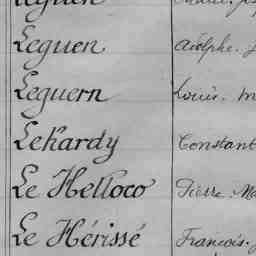 Leguen
Leguen Adolphe.
Leguern Louis.
Lehardy Constant
Le Helloco Pierre.
Le Hérissé François.